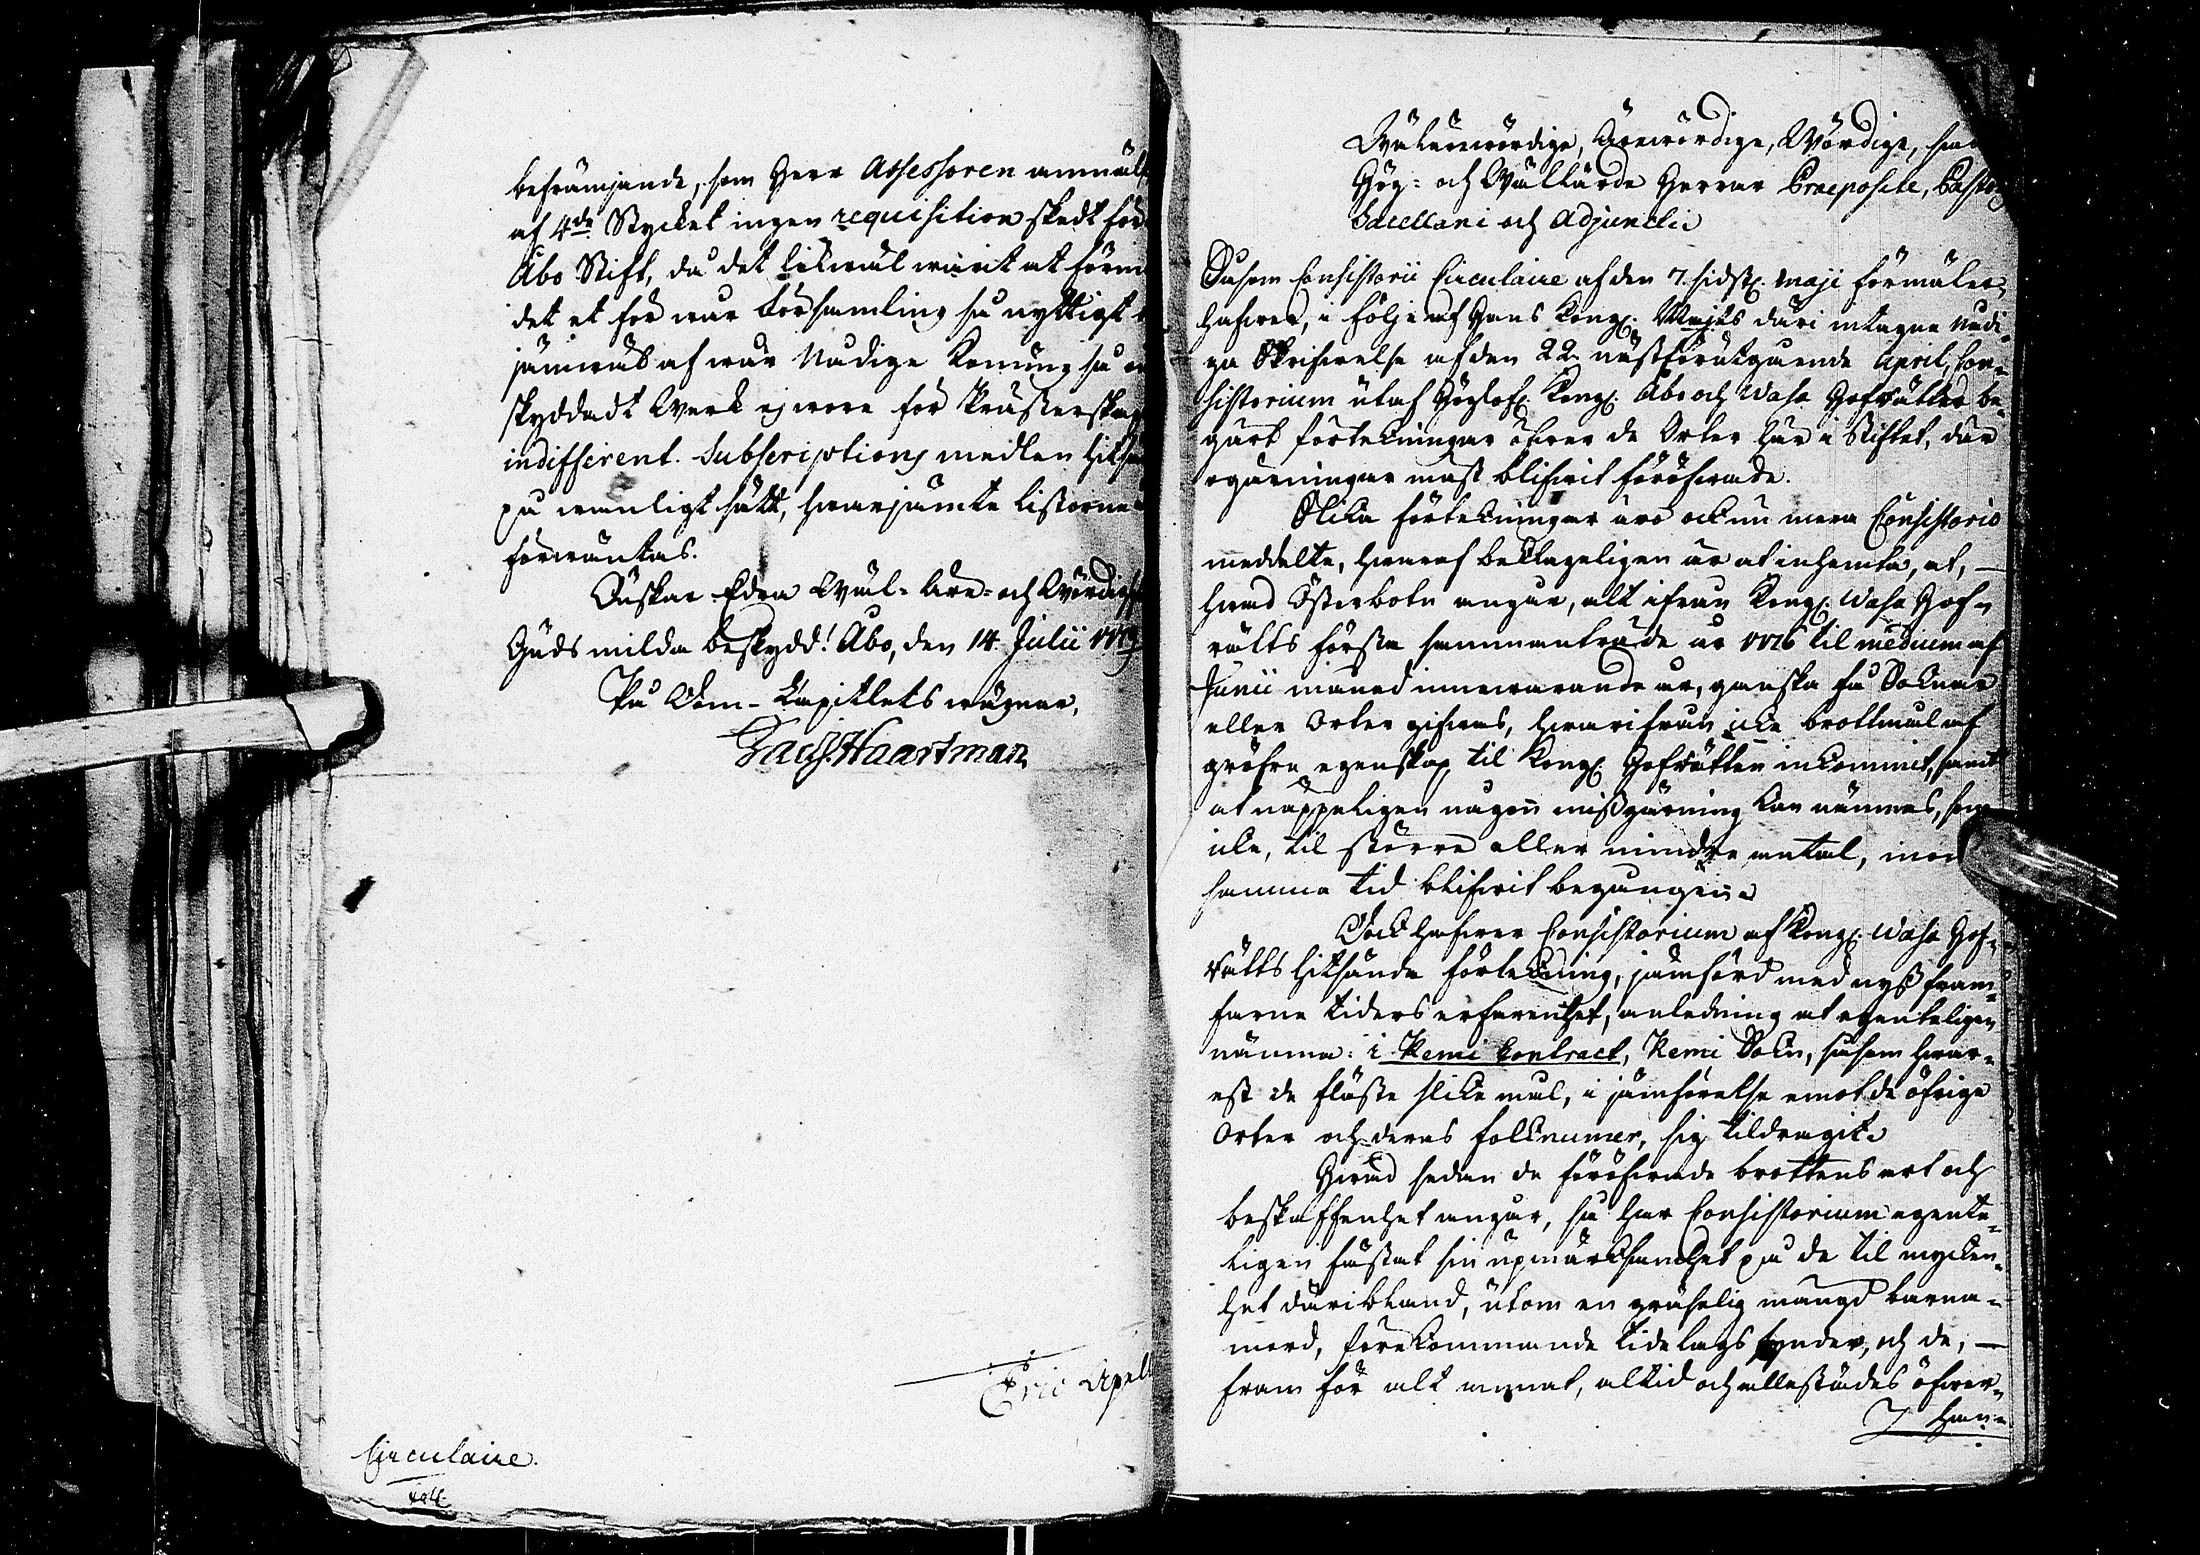 befrämjande, som Herr Assessoren anmäl
af 4de Stycket ingen requisition skedt för
Åbo Stift, då det likwäl warit at förm
det et för war Församling så nyttigt
jämwäl af wår Nådige Konung så
skyddadt Werk ej wore för Prästerskap
indifferent. Subscriptions medlen hit
på wanligt sätt, hwarjämte listorne
förwäntas.
Önskar Edra Wäl- Äre- och Wördig
Guds milda beskydd! Åbo, den 14. Julii 1779
På Dom-Capitlets wägnar,
Jac. Haartman
Eric Apell
Circulaire.
Wälärewördige, Ärewördige, Wördige, sa
Hög- och Wällärde Herrar Praepositi, Pastor
Sacellani och Adjuncti
Såsom Consistorii Circulaire af den 7. sidstl. Maji förmäler,
hafwer, i följe af Hans Kongl. Majts däri intagne Nådi
ga Skrifwelse af den 22. nästförutgående April, Con-
sistorium utaf Höglofl. Kongl. Åbo och Wasa Hofrätter be-
gärt förtekningar öfwer de Orter här i Stiftet, där
ogärningar mäst blifwit föröfwade.
Slika förtekningar äro ock nu mera Consistorio
meddelte, hwaraf beklageligen är at inhemta, at,
hwad Österbotn angår, alt ifrån Kongl. Wasa Hof-
rätts första sammanträde år 1776 til medium af
Junii månad innewarande år, ganska få Soknar
eller Orter gifwas, hwarifrån icke brottmål af
gröfre egenskap til Kongl. Hofrätten inkommit, samt
at näppeligen någon missgärning kan nämnas, som
icke, til större eller mindre antal, inom
samma tid blifwit begången.
Dock hafwer Consistorium af Kongl. Wasa Hof-
rätts hitsände förtekning, jämförd med nyss fram-
farne tiders erfarenhet, anledning at egenteligen
nämna: i Kemi Contract, Kemi Sokn, såsom hwar-
est de fläste slike mål, i jämförelse emot de öfrige
Orter och deras folknumer, sig tildragit.
Hwad sedan de föröfwade brottens art och
beskaffenhet angår, så har Consistorium egente-
ligen fästat sin upmärksamhet på de til mycken-
het däribland, utom en gräselig mängd barna-
mord, förekommande tidelags synder, och de,
fram för alt annat, altid och allestädes öfwer-
han-